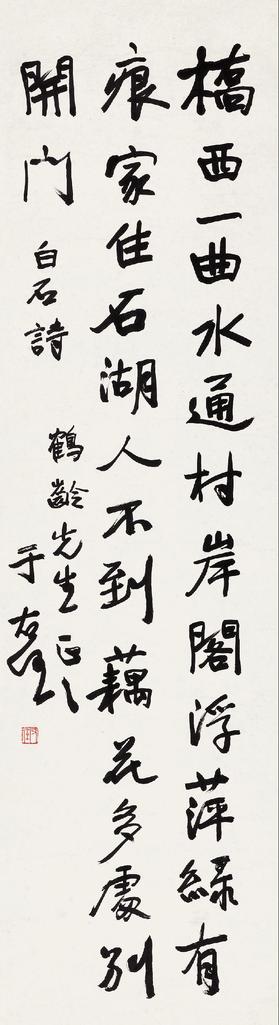 橋西一曲水通村岸閣浮萍綠有
痕家住石湖人不到藕花多處別
開門
白石詩
鶴齡先生正之
于右任